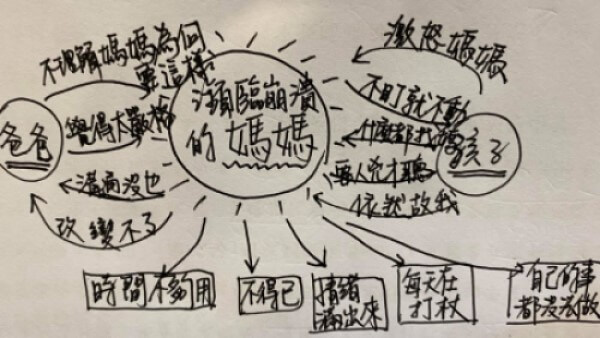 激怒媽媽
不理解媽媽為何
要這樣
瀕臨崩潰
的媽媽
爸爸
覺得太嚴格
溝通沒也
改變不了
不盯就不動
什麼都找媽
孩子
要人兇才聽
依然故我
時間不夠用
不得已
情緒
滿出來
每天在
打杖
自己的事
都沒去做